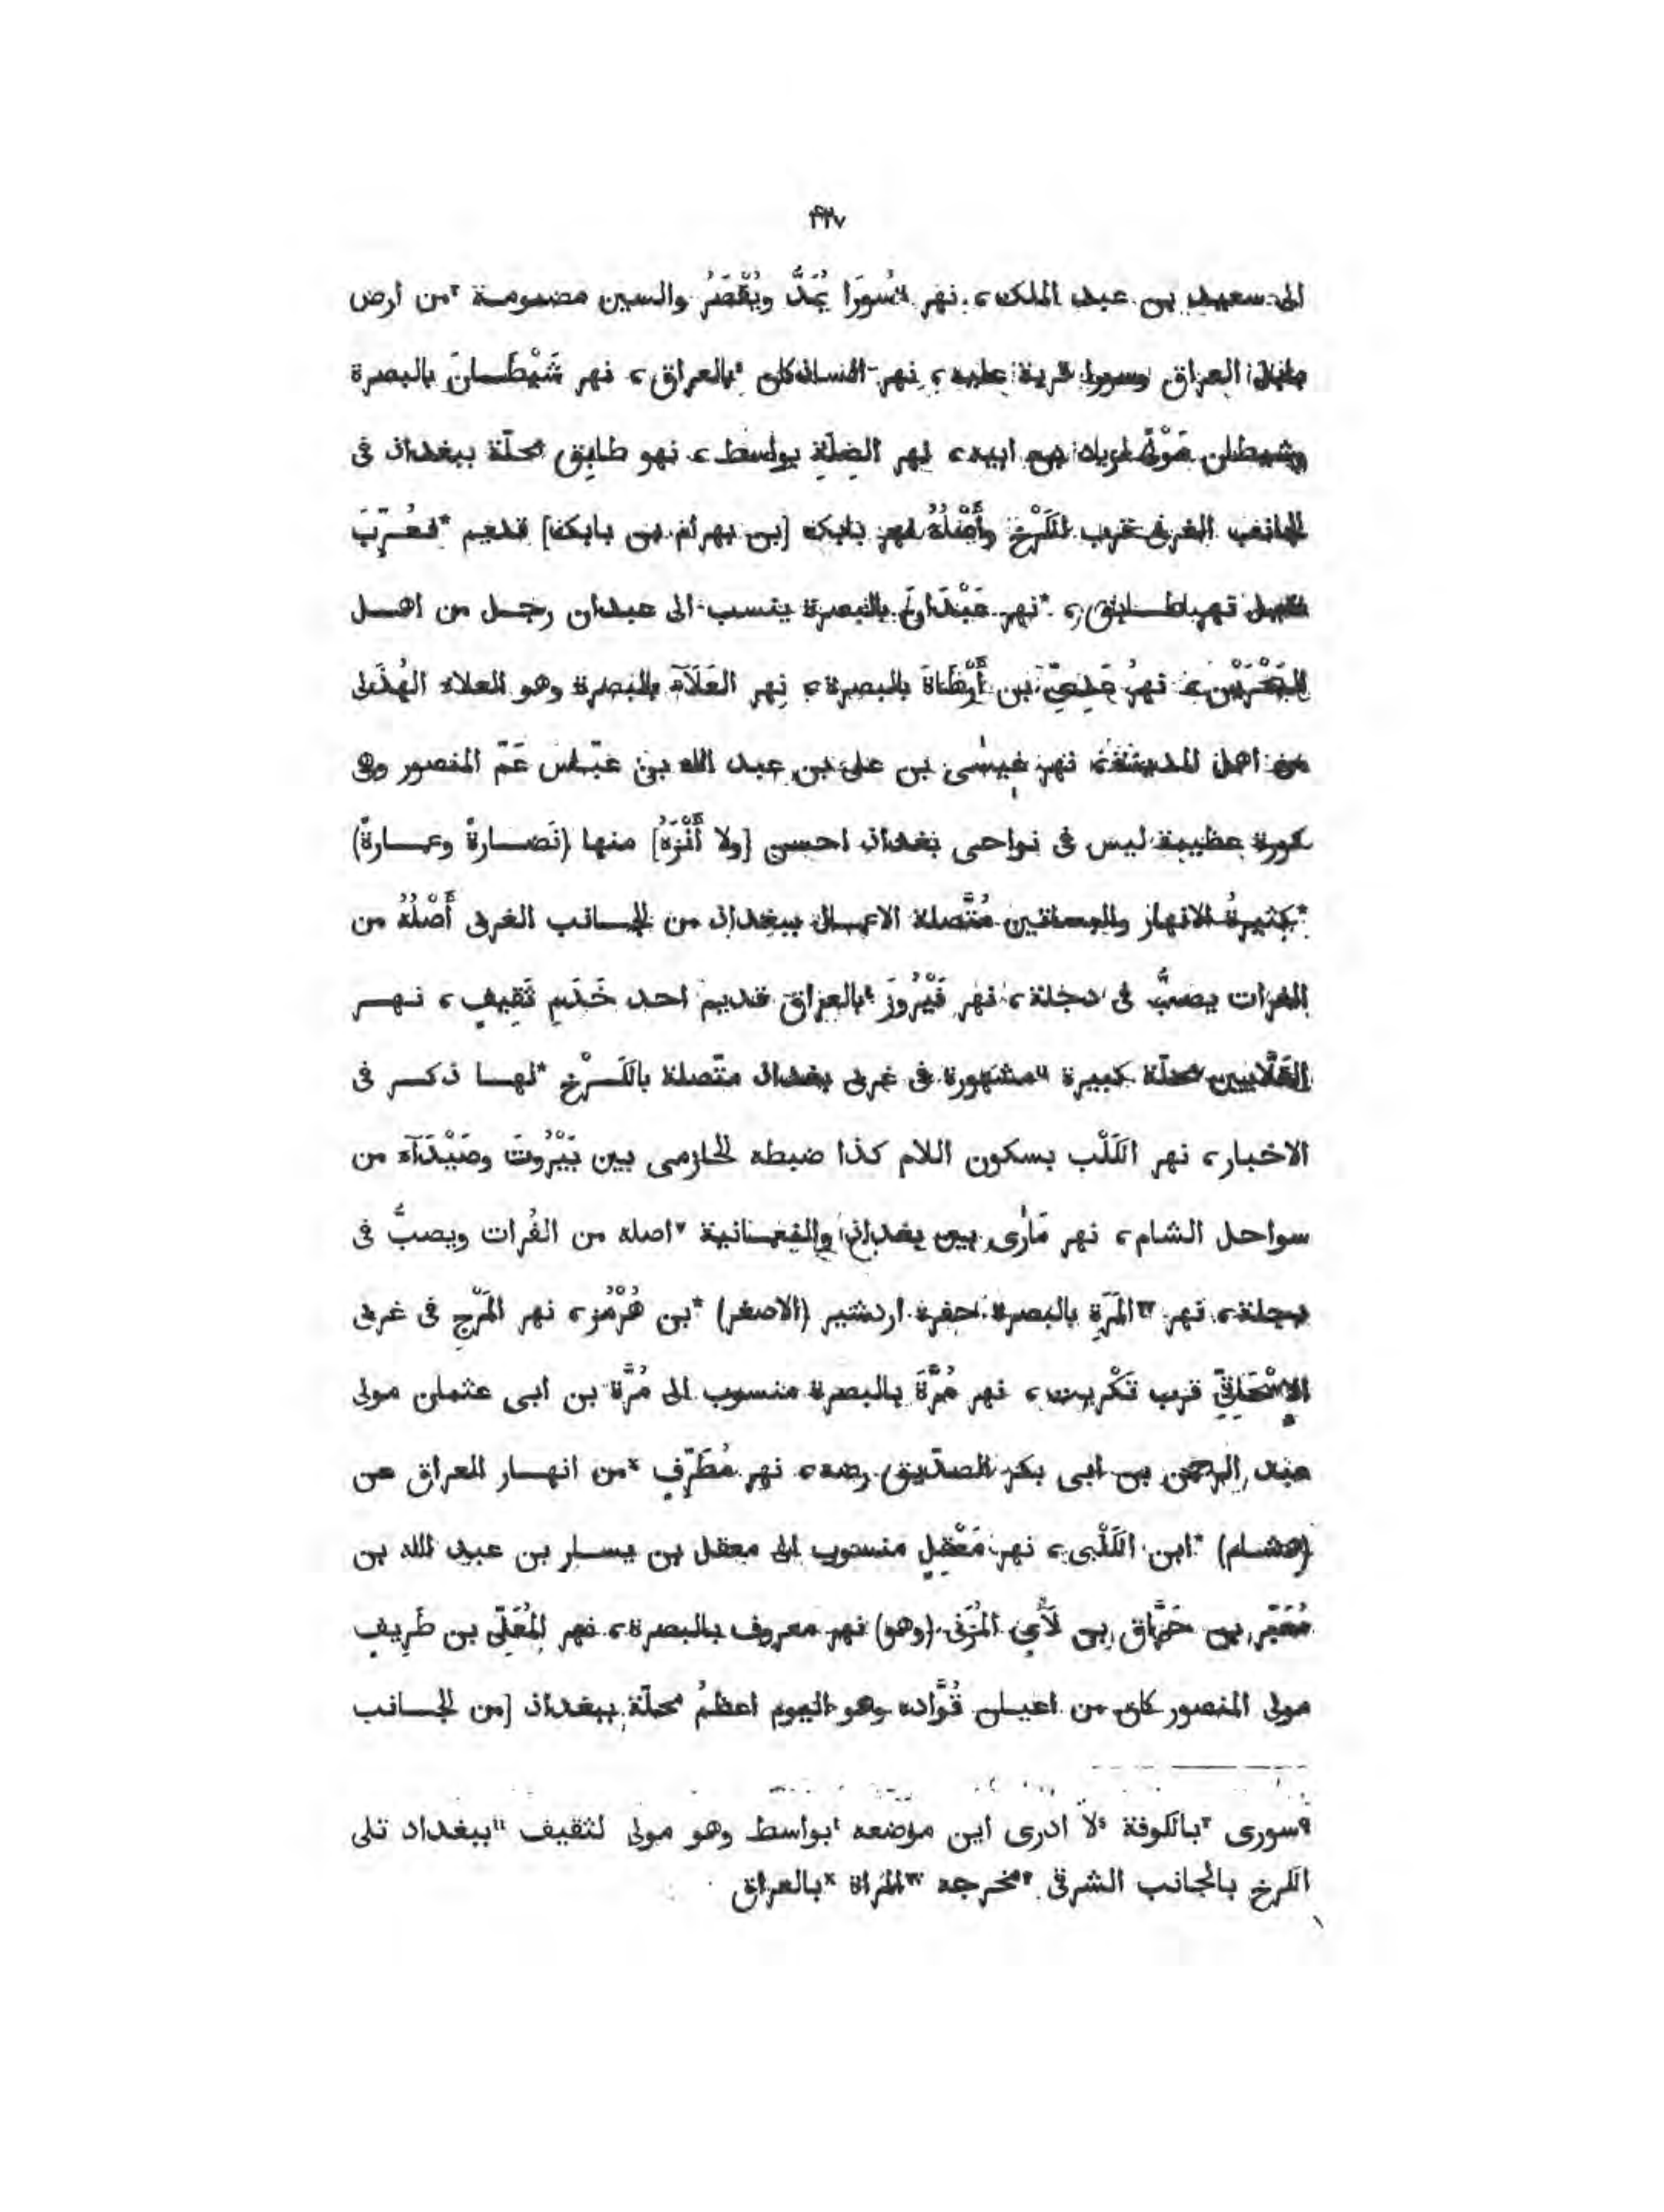 ۴۳۷
الى سعيد بن عبد الملك، نهر ᵘسُورَا يُمَدُّ ويُقْصَرُ والسين مضمومة ²من ارض
بابل العراق وسورا قرية عليه، نهر بالعراق، نهر شَيْطَانَ بالبصرة
وشيطان مَوْلًى لزياد بن ابيه، نهر الصِّلَةِ بواسط، نهر طابِق محلّة ببغداد فى
الجانب الغربى قرب الكَرْخ وأَصْلُهُ نهر بابك [بن بهرام بن بابك] قديم *فعُرِّبَ
فقيل نهر طابق، *نهر عَبْدَانَ بالبصرة ينسب الى عبدان رجل من اهل
البَحْرَيْن، نهرُ عَدِىّ بن أَرْطَاةَ بالبصرة، نهر العَلَآء بالبصرة وهو العلاء الهُذَلى
من اهل المدينة، نهر عِيسٰى بن على بن عبد الله بن عبّاس عَمّ المنصور وهى
كورة عظيمة ليس فى نواحى بغداد احسن [ولا أَنْزَهُ] منها (نَضارةً وعمارةً)
*كثيرةُ الانهار والبساتين مُتَّصلة الاعمال ببغداد من الجانب الغربى أَصْلُهُ من
الفرات يصبُّ فى دجلة، نهر فَيْرُوزَ ¹بالعراق قديم احد خَدَمِ ثَقِيفٍ، نهر
القَلَّايين محلّة كبيرة ¹¹مشهورة فى غربى بغداد متّصلة بالكَرْخ *لها ذكر فى
الاخبار، نهر الكَلْب بسكون اللام كذا ضبطه الحازمى بين بَيْرُوتَ وصَيْدَآء من
سواحل الشام، نهر مَارى بين بغداد والنعمانية ⁷اصله من الفُرات ويصبُّ فى
دجلة، نهر ³³المَرّةِ بالبصرة حفره اردشير (الاصغر) *بن هُرْمُز، نهر المَرْجِ فى غربى
الإِسْحَاقِىّ قرب تَكْريت، نهر مُرَّةَ بالبصرة منسوب الى مُرَّة بن ابى عثمان مولى
عبد الرحمن بن ابى بكر الصدّيق رضه، نهر مُطَرِّفٍ ˣمن انهار العراق عن
(هشام) *ابن الكَلْبى، نهر مَعْقِلٍ منسوب الى معقل بن يسار بن عبد الله بن
مُعَبِّر بن حَرَّاق بن لَأْىٍ المُزَنى (وهو) نهر معروف بالبصرة، نهر المُعَلَّى بن طَرِيفٍ
مولى المنصور كان من اعيان قُوَّاده وهو اليوم اعظمُ محلّة ببغداد [من الجانب
⁹سورى ²بالكوفة ⁵لا ادرى اين موضعه ¹بواسط وهو مولى لثقيف ¹¹ببغداد تلى
الكرخ بالجانب الشرقى ²مخرجه ³³المراة ˣبالعراق